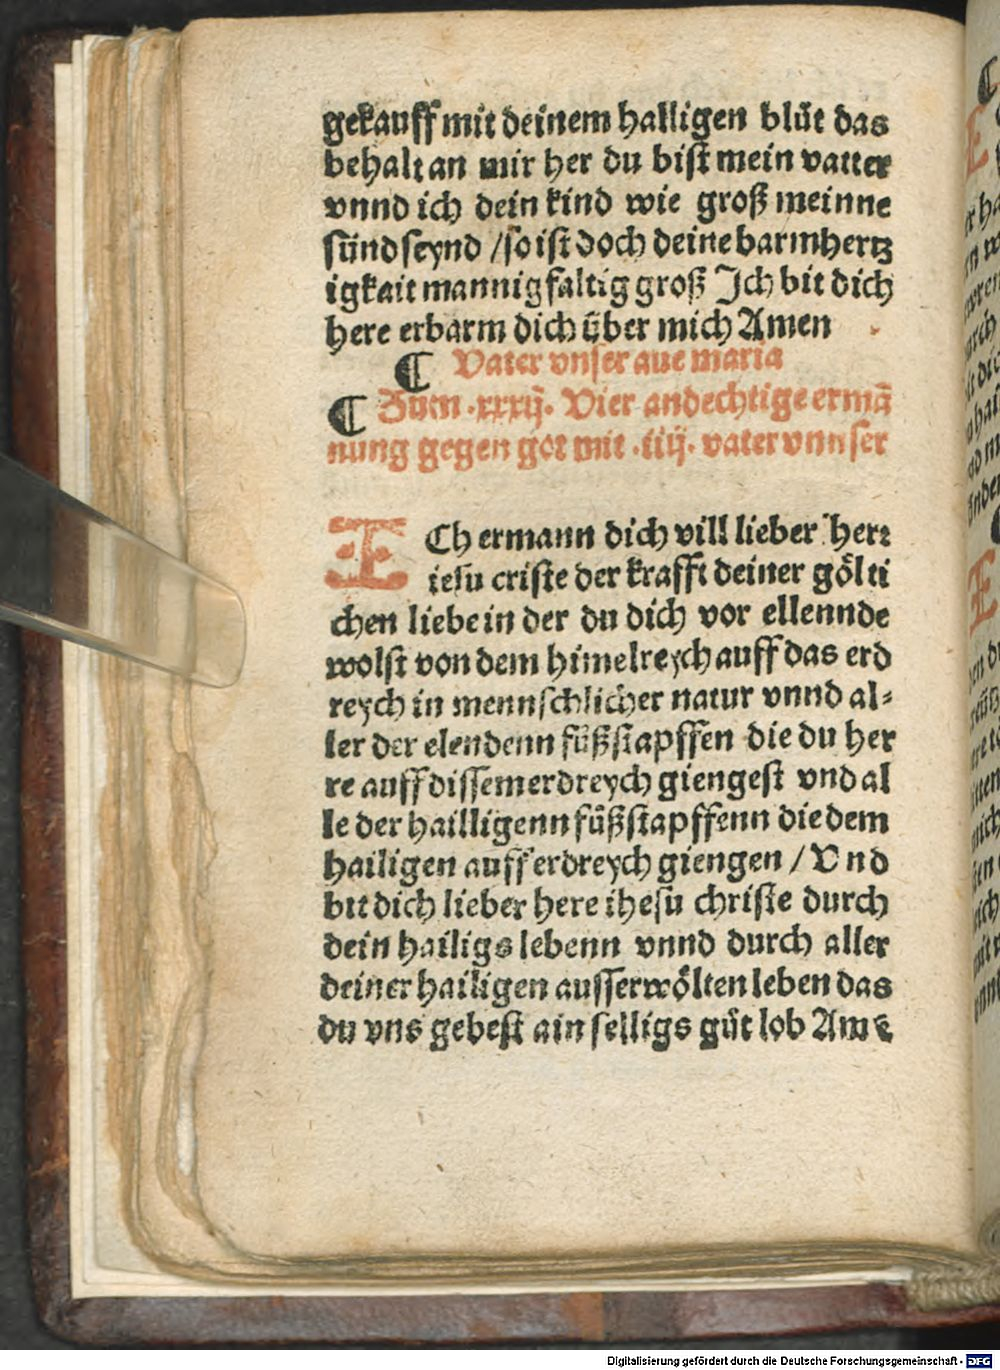 gekauff mit deinem halligen blůt das
behalt an mir her du bist mein vatter
vnnd ich dein kind wie groß meinne
sünd seynd / so ist doch deine barmhertz
igkait mannigfaltig groß Ich bit dich
here erbarm dich über mich Amen
¶ Vater vnser aue maria
¶ Zum .xxxij. Vier andechtige ermā
nung gegen got mit .iiij. vater vnnser
ICh ermann dich vill lieber herr
iesu criste der krafft deiner gölti
chen liebe in der du dich vor ellennde
wolst von dem himelreych auff das erd
reych in mennschlicher natur vnnd al⸗
ler der elendenn fůßstapffen die du her
re auff dissem erdreych giengest vnd al
le der hailligenn fůßstapffenn die dem
hailigen auff erdreych giengen / Vnd
bit dich lieber here ihesu christe durch
dein hailigs lebenn vnnd durch aller
deiner hailigen ausserwölten leben das
du vns gebest ain selligs gůt lob Amē
Digitalisierung gefördert durch die Deutsche Forschungsgemeinschaft - DFG